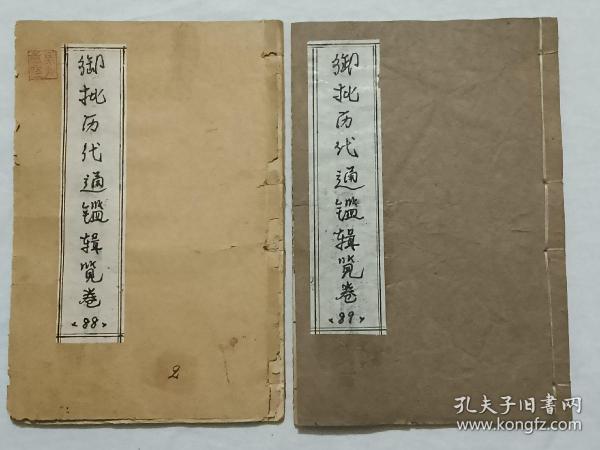 御批历代通鑑辑览卷
<88>
2
御批历代通鑑辑览卷
<89>
孔夫子旧書网
www.kongfz.com